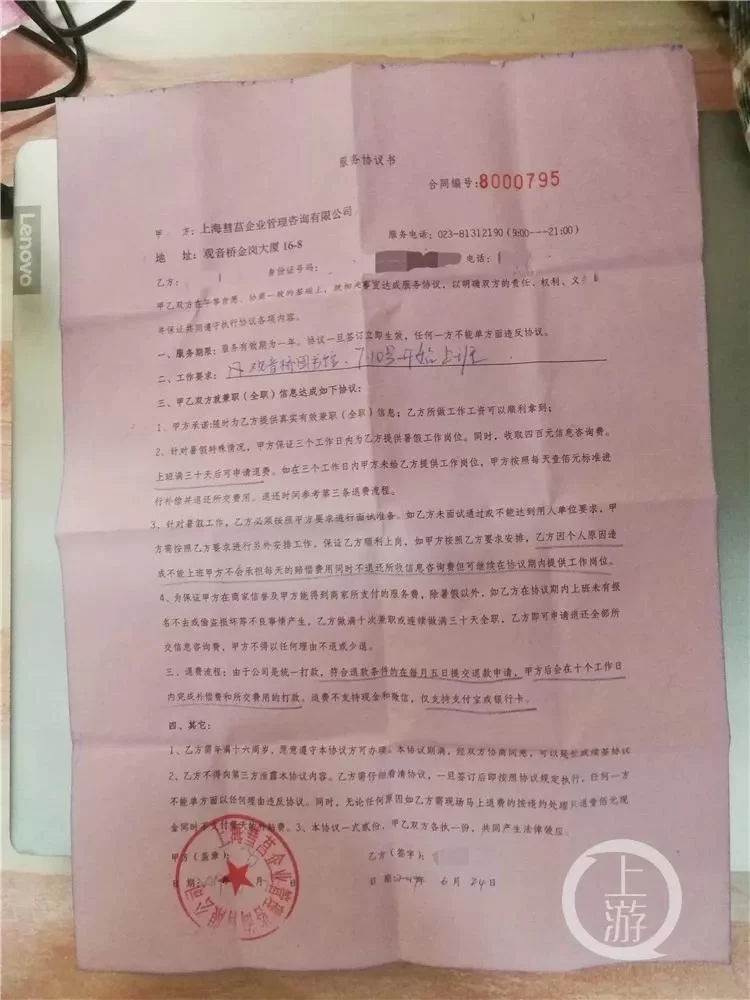 Lenovo
服务协议书
合同编号:8000795
甲 方: 上海彗莒企业管理咨询有限公司
服务电话: 023-81312190 (9:00---21:00)
地 址: 观音桥金岗大厦 16-8
乙方: 身份证号码: 电话:
甲乙双方在平等自愿、协商一致的基础上, 就相关事宜达成服务协议, 以明确双方的责任、权利、义
并保证共同遵守执行协议各项内容。
一、服务期限: 服务有效期为一年。协议一旦签订立即生效, 任何一方不能单方面违反协议。
二、工作要求: 观音桥图书馆、7.10号开始上班
三、甲乙双方就兼职 (全职) 信息达成如下协议:
1、甲方承诺:随时为乙方提供真实有效兼职 (全职) 信息; 乙方所做工作工资可以顺利拿到;
2、针对暑假特殊情况, 甲方保证三个工作日内为乙方提供暑假工作岗位。同时, 收取四百元信息咨询费。
上班满三十天后可申请退费。如在三个工作日内甲方未给乙方提供工作岗位, 甲方按照每天壹佰元标准进
行补偿并退还所交费用。退还时间参考第三条退费流程。
3、针对暑假工作, 乙方必须按照甲方要求进行面试准备。如乙方未面试通过或不能达到用人单位要求, 甲
方需按照乙方要求进行另外安排工作, 保证乙方顺利上岗, 如甲方按照乙方要求安排, 乙方因个人原因造
成不能上班甲方不会承担每天的赔偿费用同时不退还所收信息咨询费但可继续在协议期内提供工作岗位。
4、为保证甲方在商家信誉及甲方能得到商家所支付的服务费, 除暑假以外, 如乙方在协议期内上班未有报
名不去或偷盗损坏等不良事情产生, 乙方做满十次兼职或连续做满三十天全职, 乙方即可申请退还全部所
交信息咨询费, 甲方不得以任何理由不退或少退。
三、退费流程: 由于公司是统一打款, 符合退款条件的在每月五日提交退款申请, 甲方后会在十个工作日
内完成补偿费和所交费用的打款。退费不支持现金和微信, 仅支持支付宝或银行卡。
四、其它:
1、乙方需年满十六周岁, 愿意遵守本协议方可办理。本协议期满, 经双方协商同意, 可以延长或续签协议
2、乙方不得向第三方泄露本协议内容。乙方需仔细看清协议, 一旦签订后即按照协议规定执行, 任何一方
不能单方面以任何理由违反协议。同时, 无论任何原因如乙方需现场马上退费的按违约处理只退壹佰元现
金同时不支付每天的补贴费。3、本协议一式贰份, 甲乙双方各执一份, 共同产生法律效应。
甲方 (盖章): 乙方 (签字):
日 期: 年 月 日 日 期: 年 6 月 24 日
上海彗莒企业管理咨询有限公司
上游